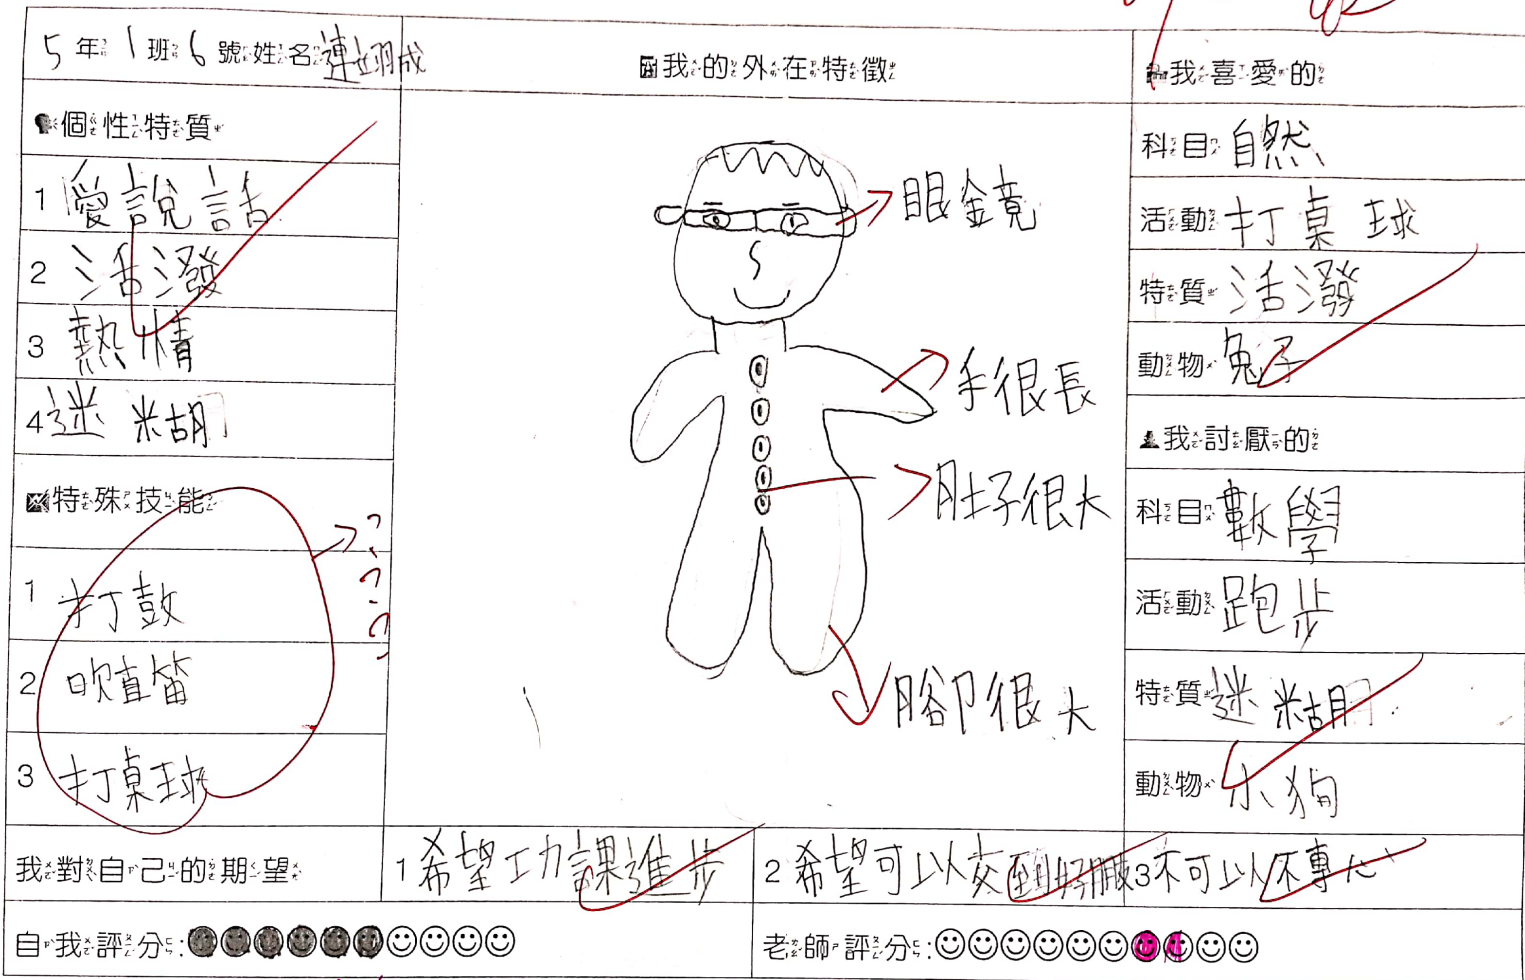 5年1班6號姓名連翊成
個性特質
1 愛說話
2 活潑
3 熱情
4 迷糊
特殊技能
1 打鼓
2 吹直笛
3 打桌球
???
我的外在特徵
眼鏡
手很長
肚子很大
腳很大
我喜愛的
科目 自然
活動 打桌球
特質 活潑
動物 兔子
我討厭的
科目 數學
活動 跑步
特質 迷糊
動物 小狗
我對自己的期望
1 希望功課進步
2 希望可以交到好朋
3 不可以不專心
自我評分:
老師評分: